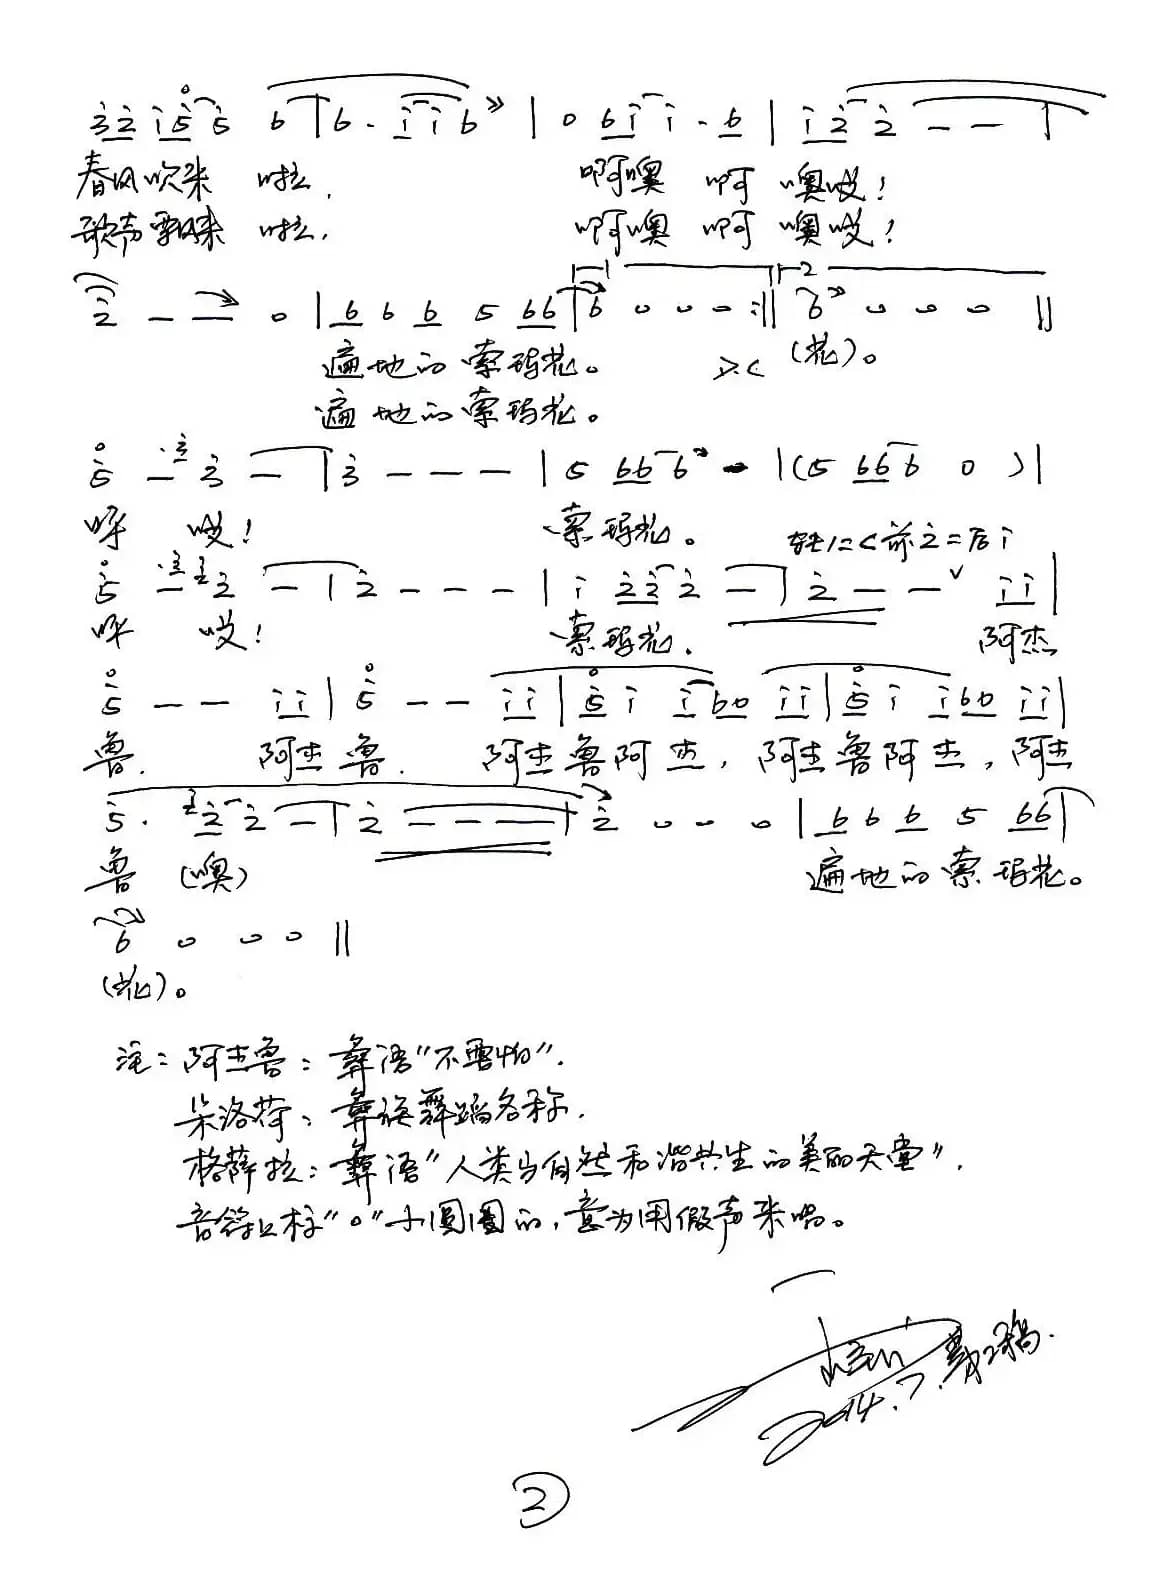 3̇ 2̇ i 5̇ 5̇ 6 | 6 · i i 6 | 0 6 i i · 6 | i 2̇ 2̇ — — |
春风吹来 啦, 啊噢 啊 噢哎!
歌声飘来 啦, 啊噢 啊 噢哎!
1 2
2̇ — — 0 | 6 6 6 5 66 | 6 0 0 0 :‖ 6 0 0 0 ‖
遍地的 索玛花。 D.C. (花)。
遍地的索玛花。
5̇ — 3̇ 3̇ — | 3̇ — — — | 5 66 6 - | (5 66 6 0 ) |
呀 哎! 索玛花。 转1=C前2̇=后i
5̇ — 3̇ 3̇ 2̇ — | 2̇ — — — | i 2̇2̇ 2̇ — | 2̇ — — ∨ i i |
呀 哎! 索玛花. 阿杰
5̇ — — i i | 5̇ — — i i | 5̇ i i 60 i i | 5̇ i i 60 i i |
鲁. 阿杰鲁. 阿杰鲁阿杰, 阿杰鲁阿杰, 阿杰
5̇ · 3̇ 2̇ 2̇ — | 2̇ — — — | 2̇ 0 0 0 | 6 6 6 5 66 |
鲁 (噢) 遍地的索玛花。
6 0 0 0 ‖
(花)。
注: 阿杰鲁: 彝语"不要怕".
朵洛荷: 彝族舞蹈名称.
格薛拉: 彝语"人类与自然和谐共生的美丽天堂".
音符上标"o"小圆圈的, 意为用假声来唱。
2014.7.第2稿.
②